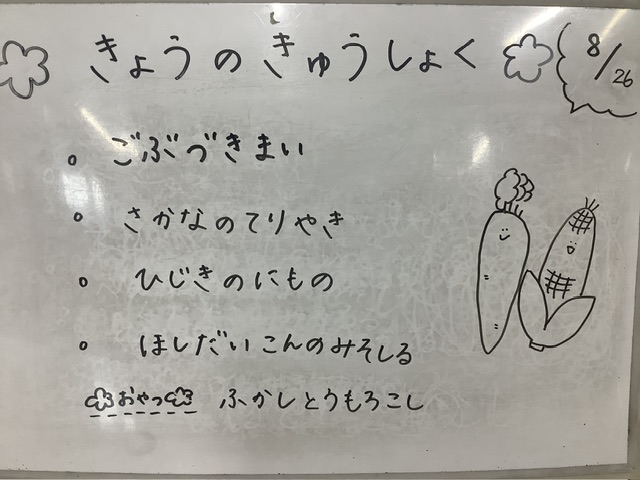 きょうのきゅうしょく
8/26
。ごぶづきまい
。さかなのてりやき
。ひじきのにもの
。ほしだいこんのみそしる
おやつ ふかしとうもろこし